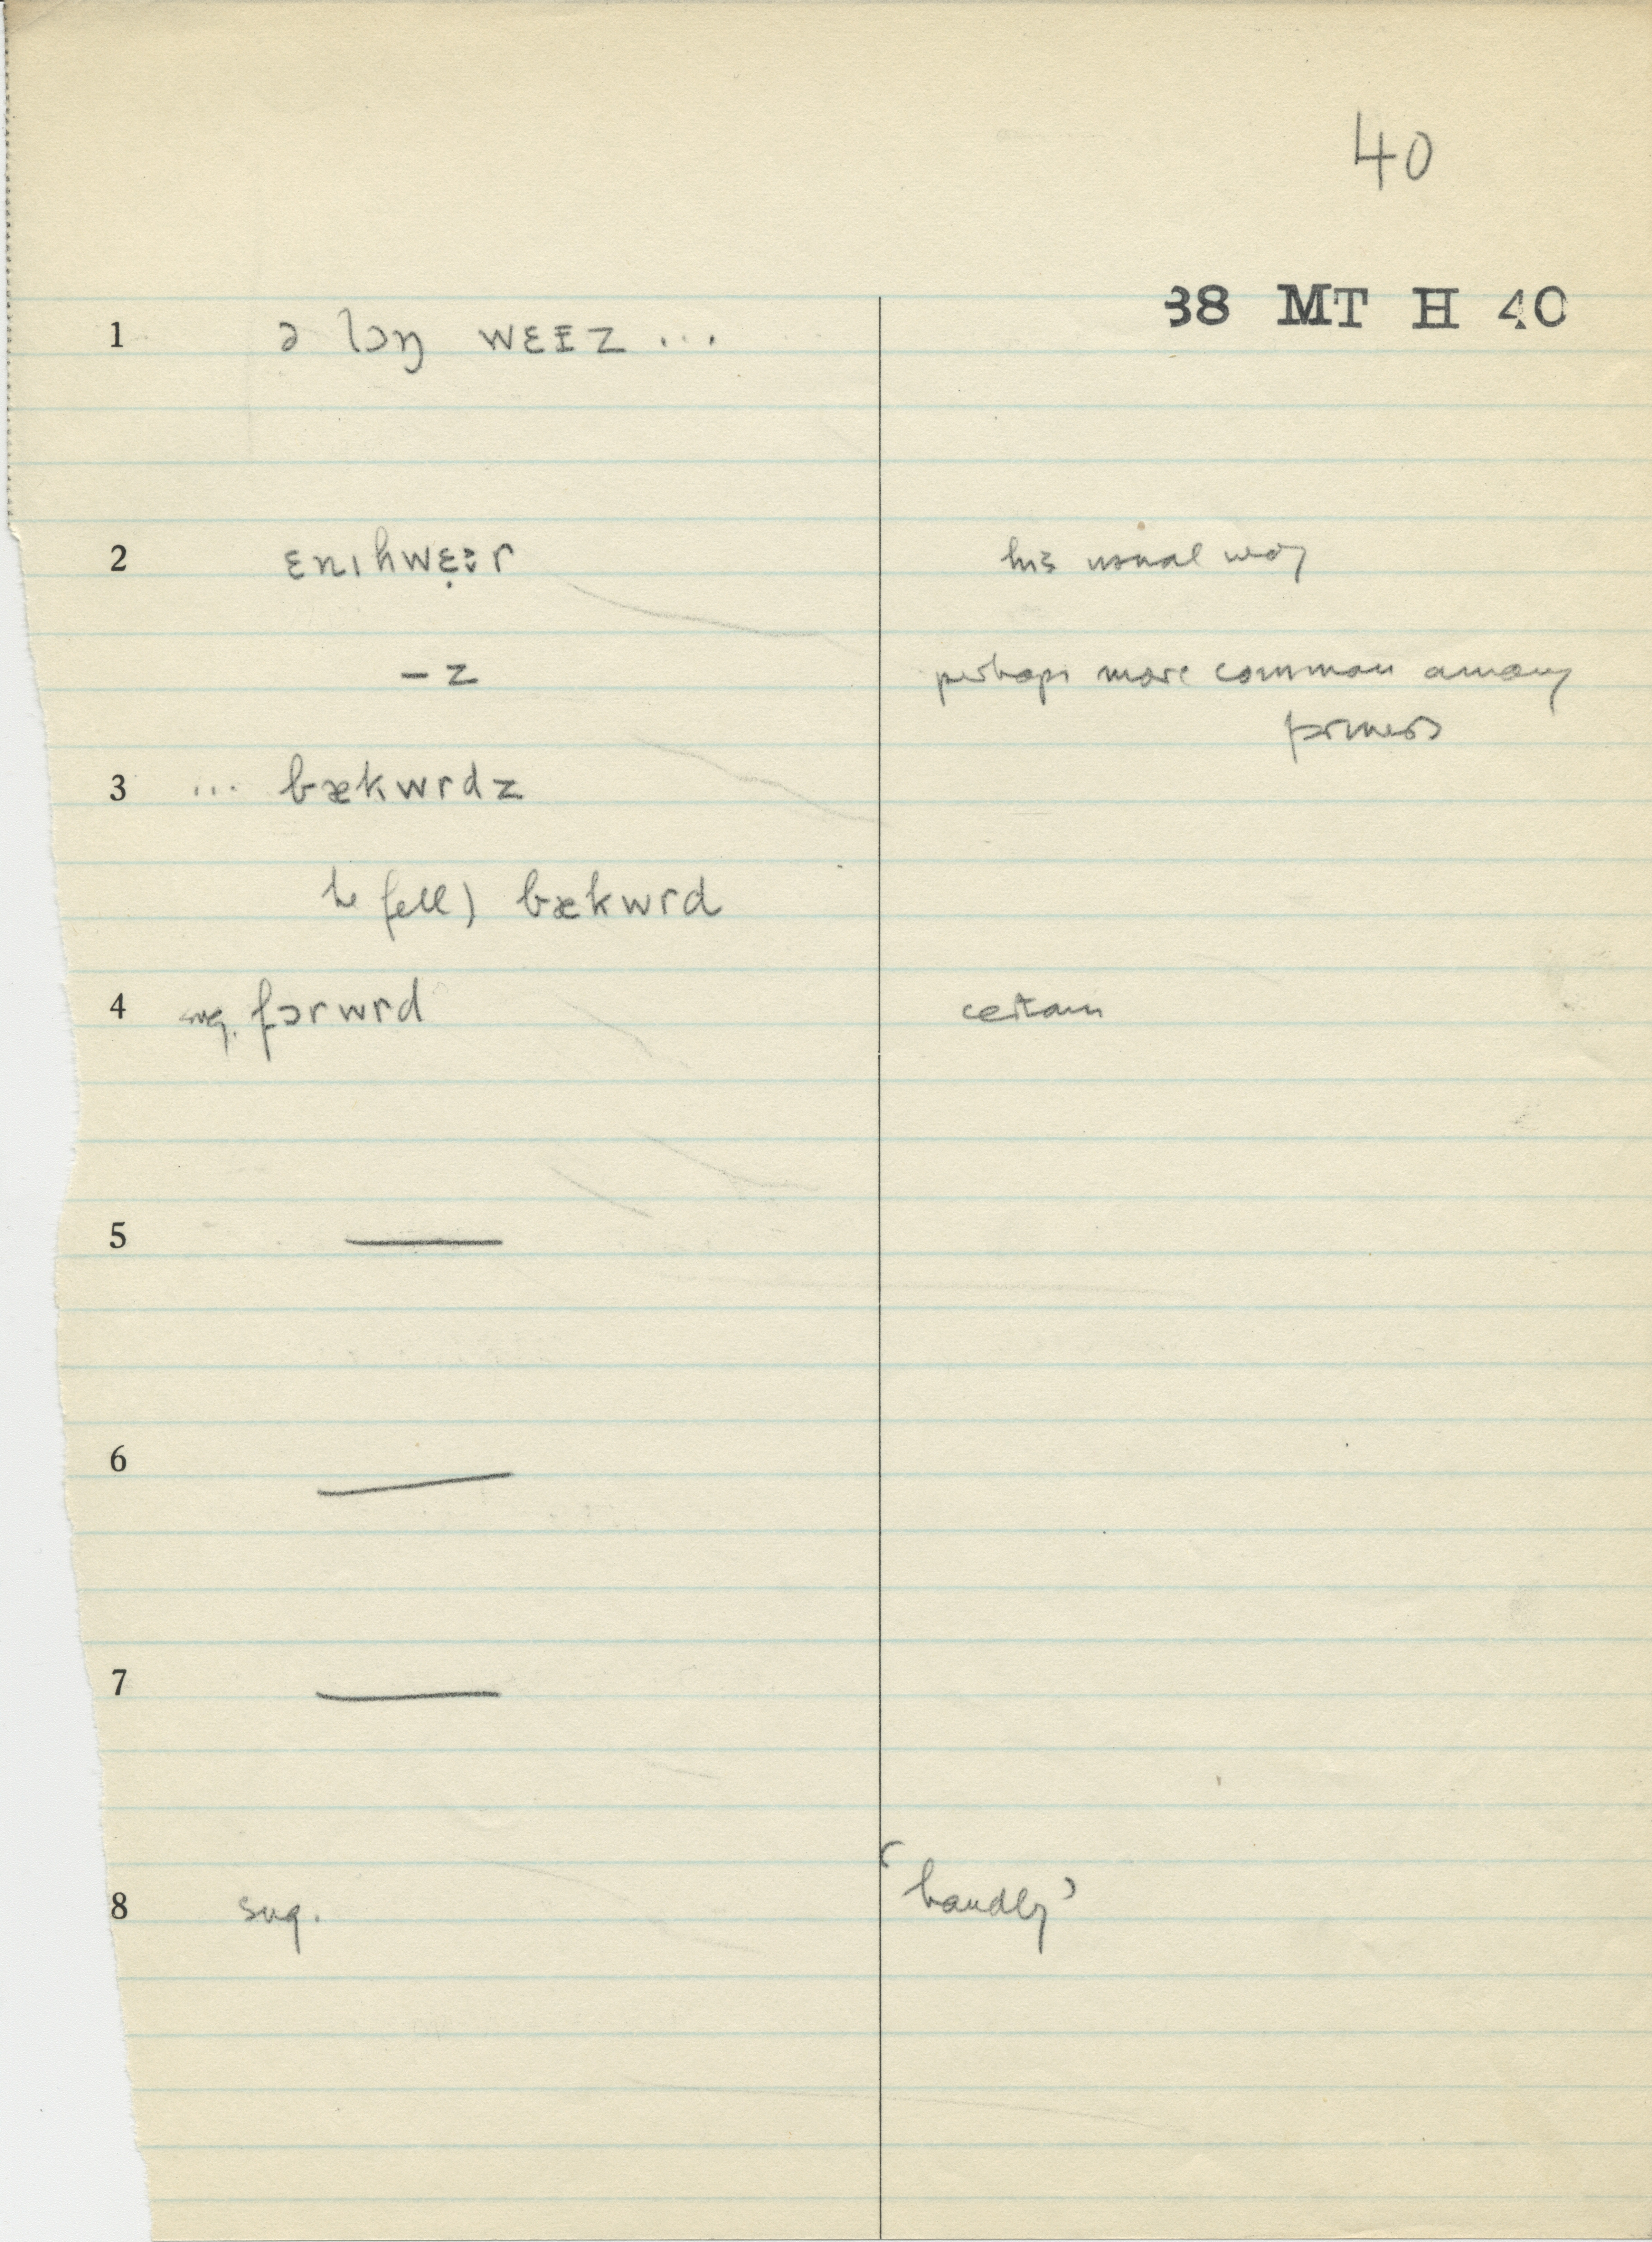 40
38 MT H 40
1 ə lɔŋ wɛɪz ...
2 ɛnɪhwɛ̣ːr his usual way
– z perhaps more common among
farmers
3 ... bækwrdz
he fell) bækwrd
4 sug. fɔrwrd certain
5 —
6 —
7 —
8 sug. ‘handly’